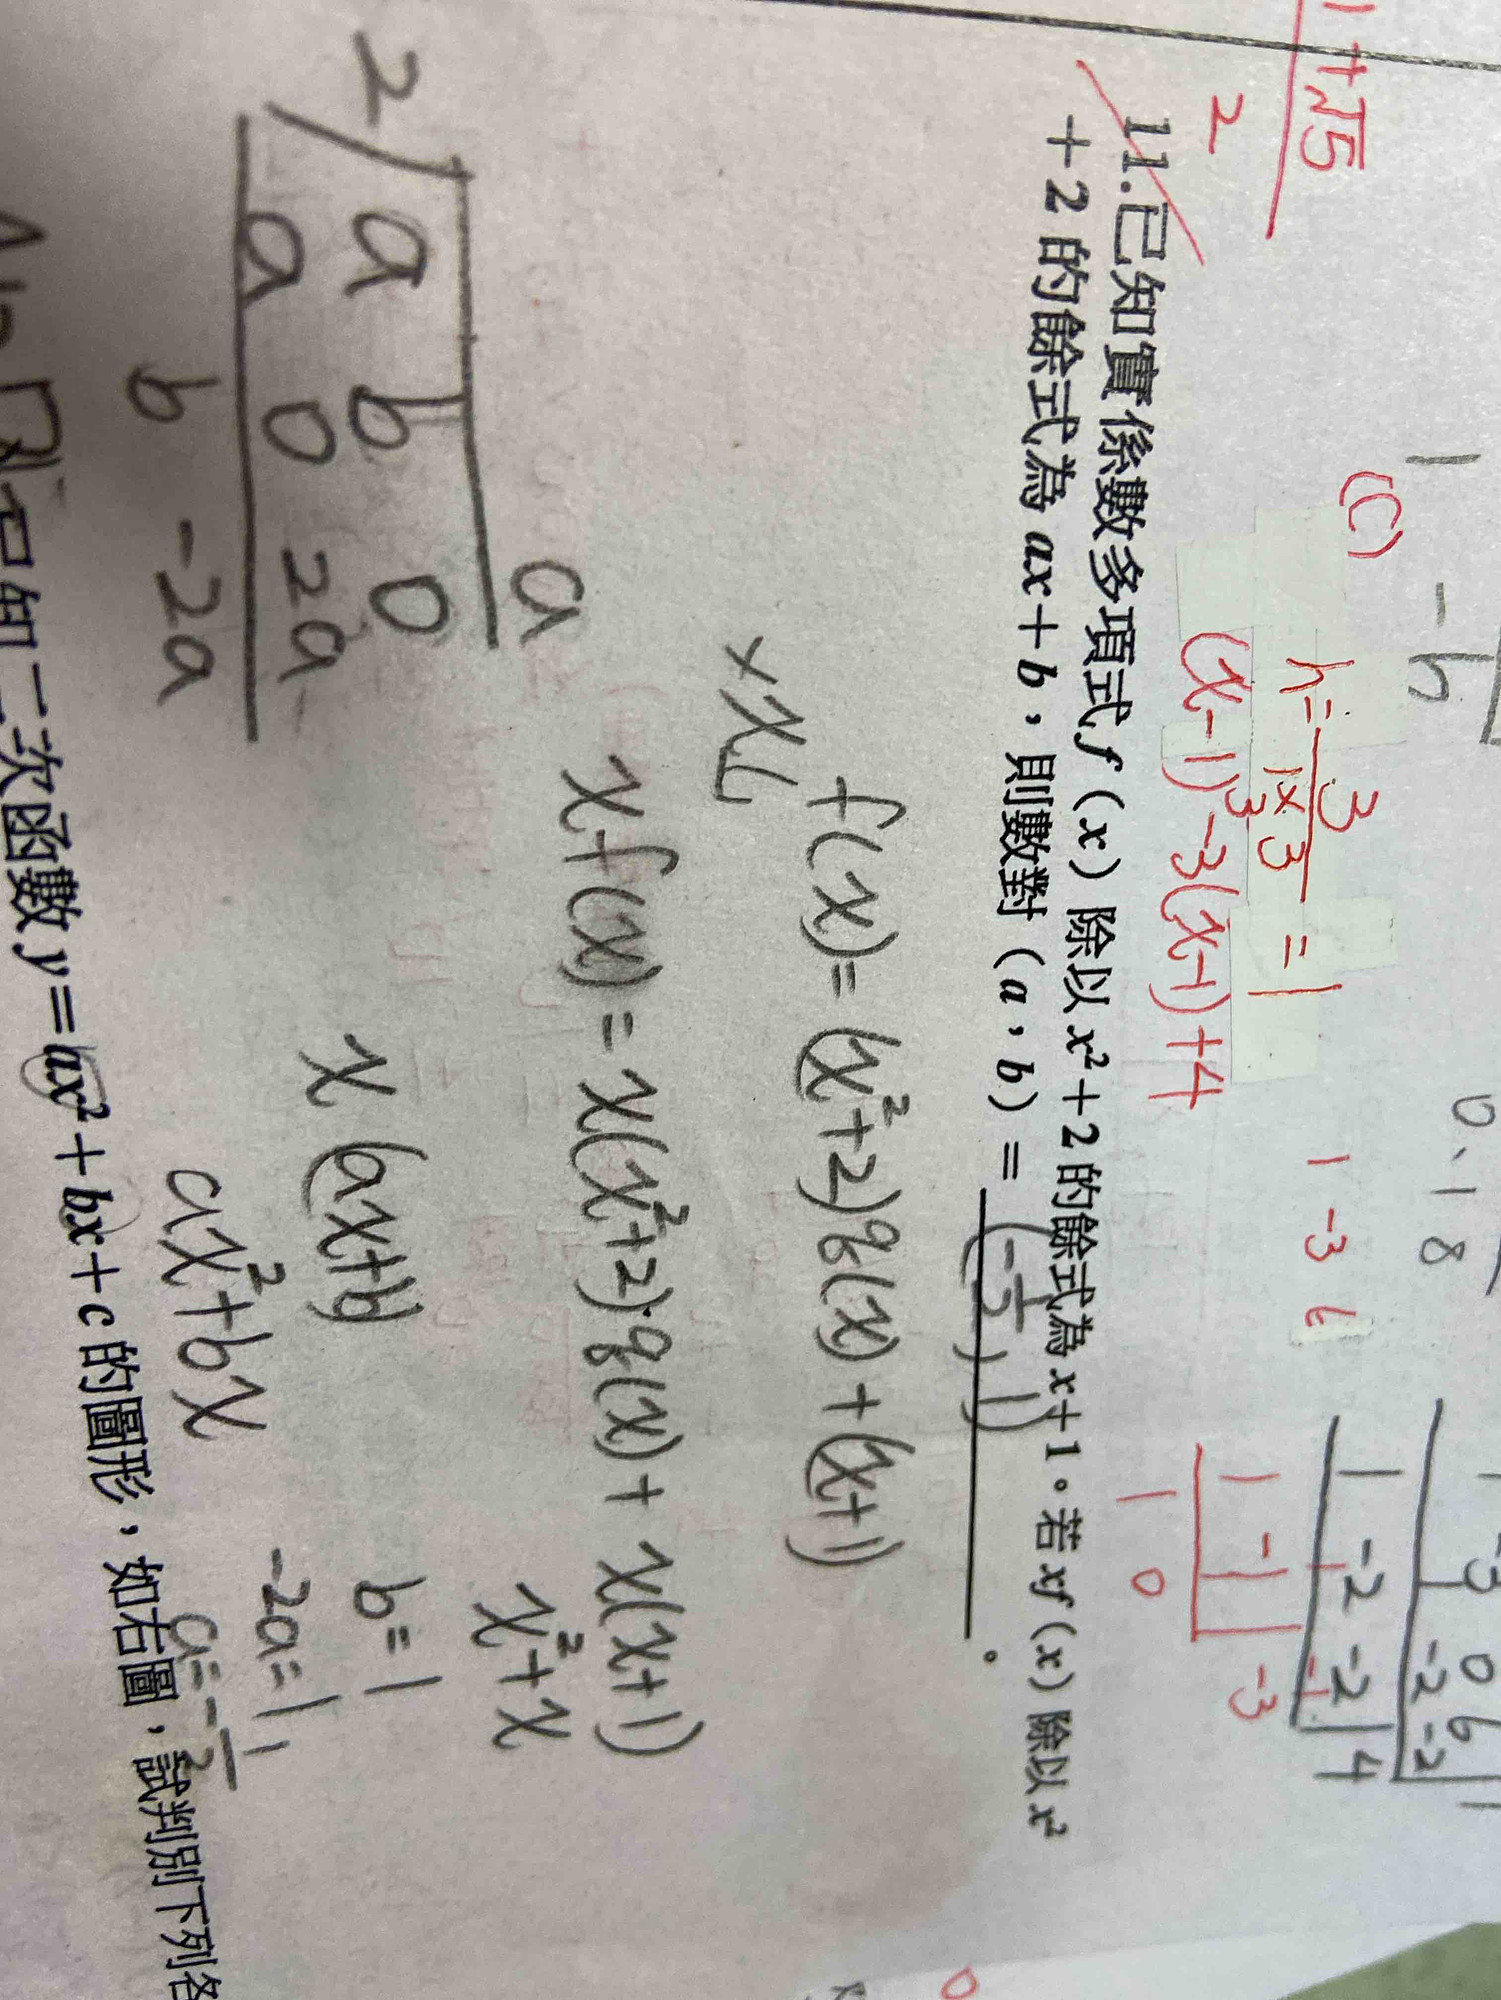 1+√5
2
1 -h
0、18
(C) h = 3 / 1×3 = 1
(x-1)³-3(x-1)+4
1 -3 0 6
-2 -2
1 -2 -2 4
1 -1 -3
1 0
11.已知實係數多項式 f(x)除以 x²+2 的餘式為 x+1。若 xf(x)除以 x²
+2 的餘式為 ax+b,則數對(a,b)= (-1/2, 1) 。
f(x)= (x²+2)q(x)+(x+1)
xx
x f(x) = x(x²+2)·q(x)+ x(x+1)
x²+x
a
2 a b 0
a 0 2a
b -2a
x (ax+b)
ax²+bx
b=1
-2a=1
a=-1/2
已知二次函數 y=ax²+bx+c 的圖形,如右圖,試判別下列各